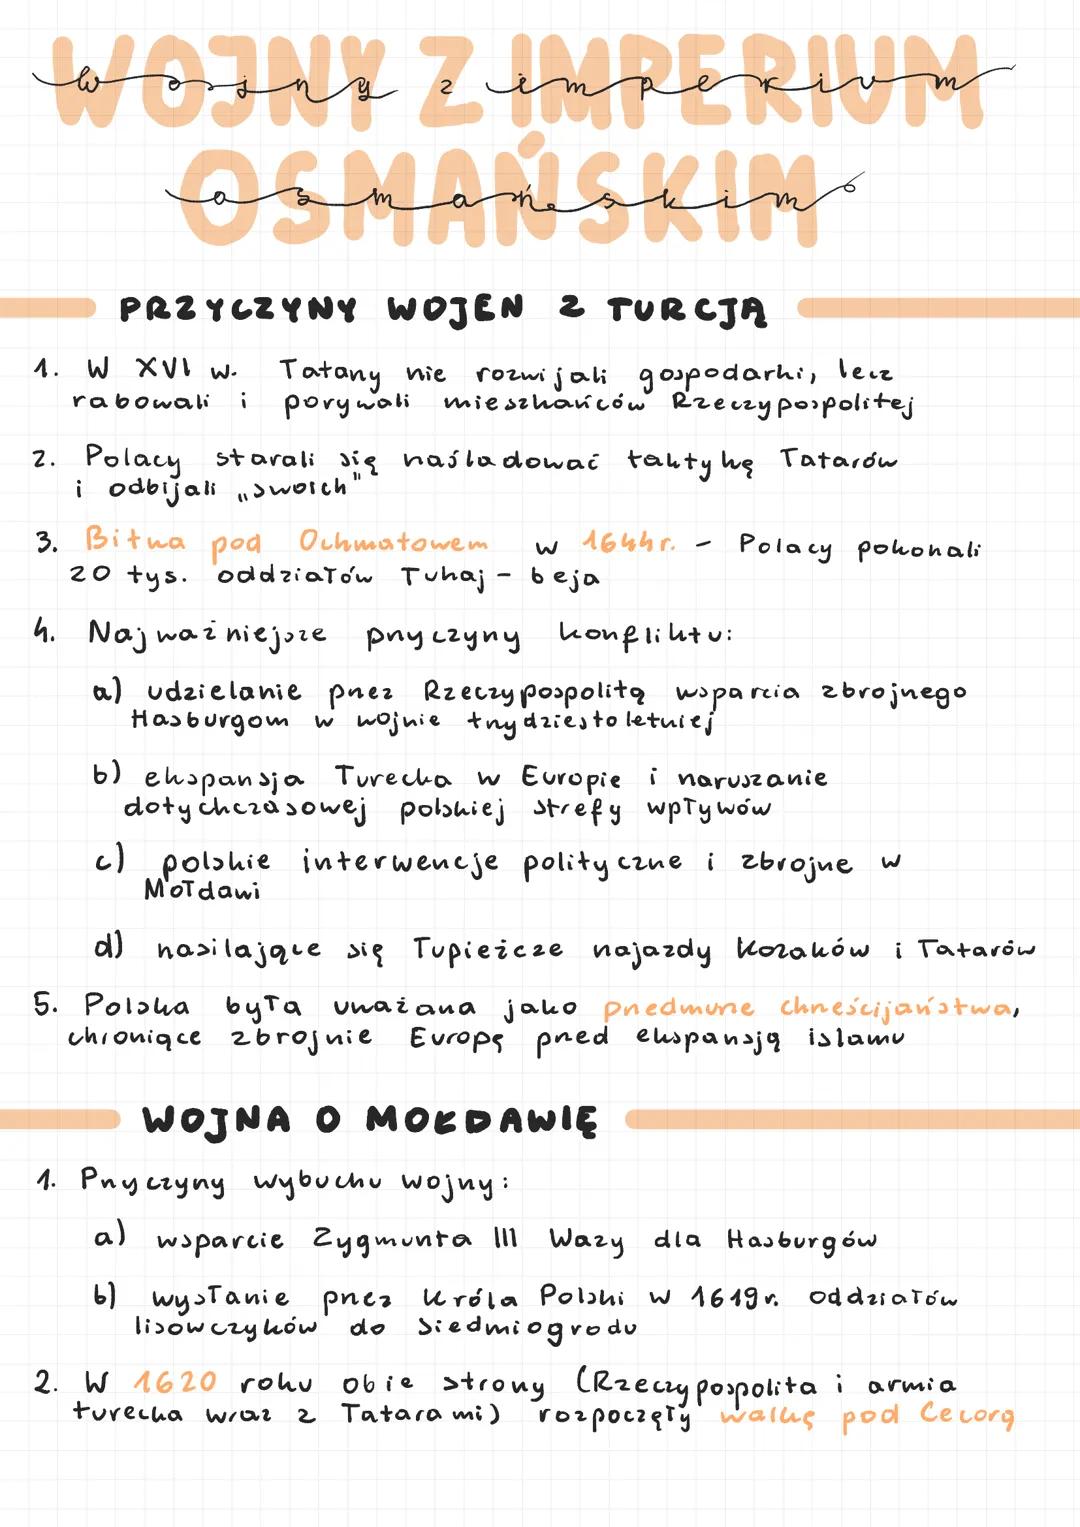 WOJNY Z IMPERIUM
wojny z imperium
OSMAŃSKIM
osmańskim
PRZYCZYNY WOJEN Z TURCJĄ
1. W XVI w. Tatarzy nie rozwijali gospodarki, lecz
rabowali i porywali mieszkańców Rzeczypospolitej
2. Polacy starali się naśladować taktykę Tatarów
i odbijali „swoich"
3. Bitwa pod Ochmatowem w 1644r. - Polacy pokonali
20 tys. oddziałów Tuhaj-beja
4. Najważniejsze przyczyny konfliktu:
a) udzielanie przez Rzeczypospolitą wsparcia zbrojnego
Hasburgom w wojnie trzydziestoletniej
b) ekspansja Turecka w Europie i naruszanie
dotychczasowej polskiej strefy wpływów
c) polskie interwencje polityczne i zbrojne w
Mołdawi
d) nasilające się łupieżcze najazdy Kozaków i Tatarów
5. Polska była uważana jako przedmurze chrześcijaństwa,
chroniące zbrojnie Europę przed ekspansją islamu
WOJNA O MOŁDAWIĘ
1. Przyczyny wybuchu wojny:
a) wsparcie Zygmunta III Wazy dla Hasburgów
b) wysłanie przez Króla Polski w 1619r. oddziałów
lisowczyków do Siedmiogrodu
2. W 1620 roku obie strony (Rzeczypospolita i armia
turecka wraz z Tatarami) rozpoczęły walkę pod Cecorą